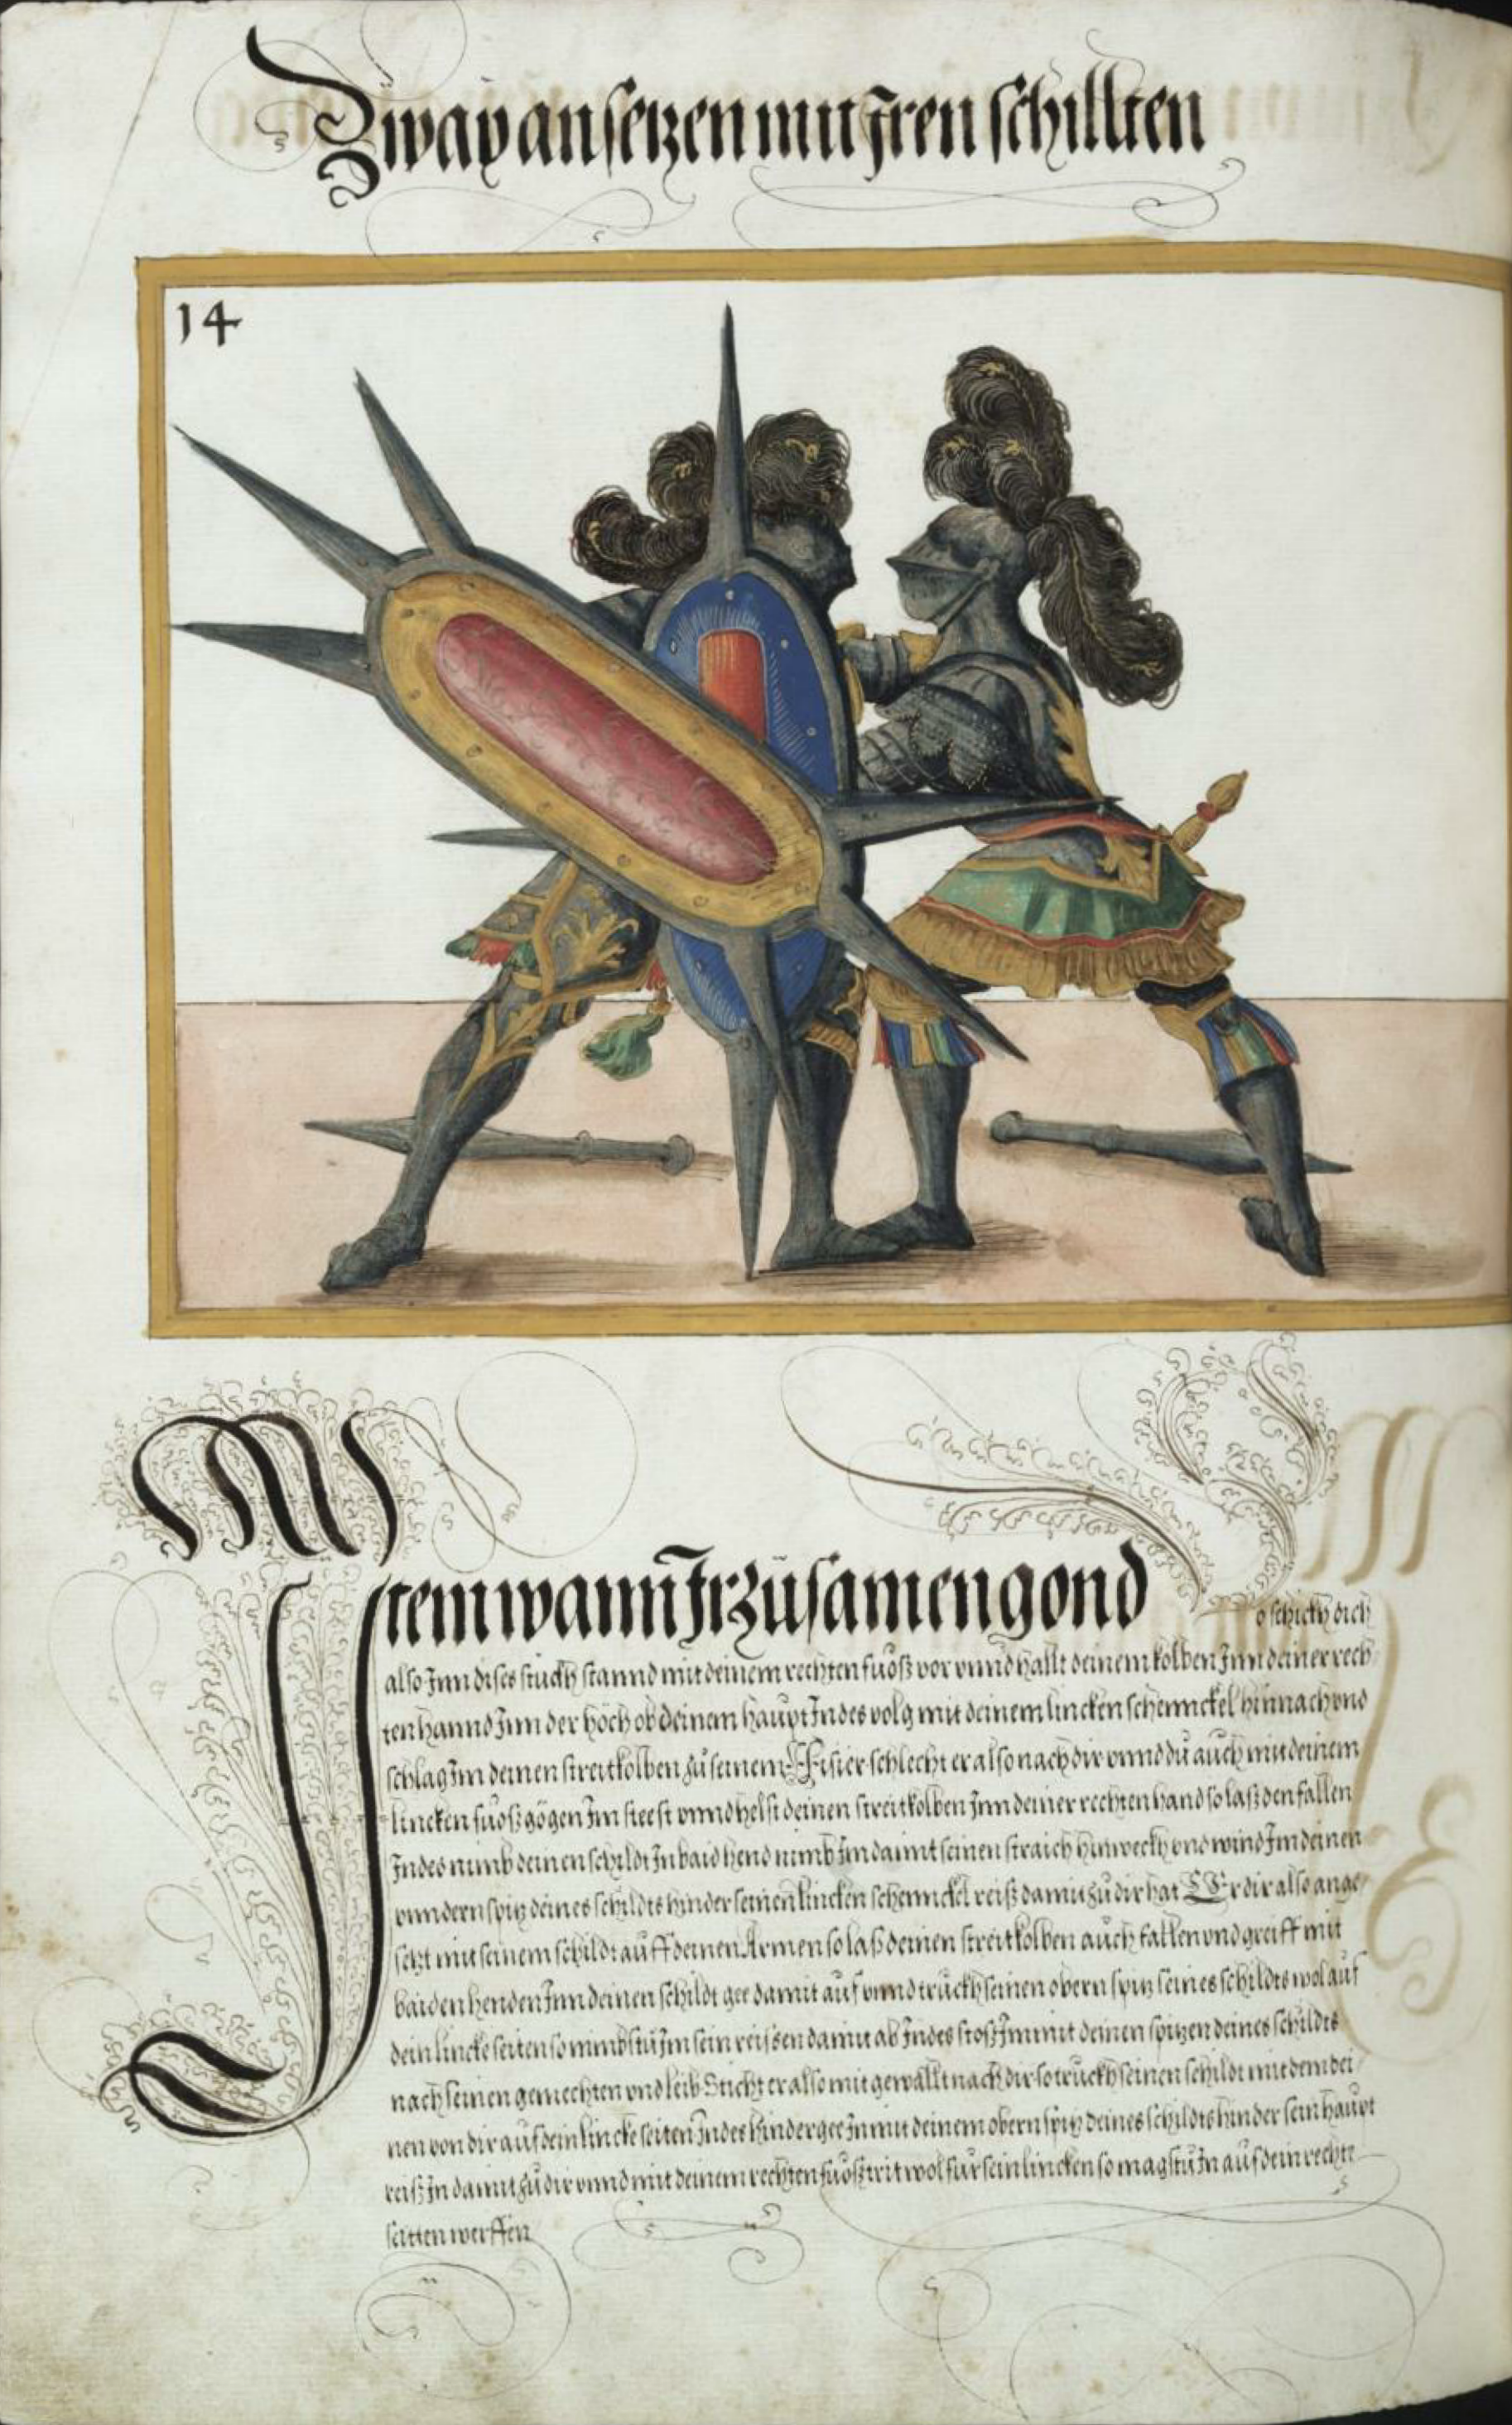 Zway ansetzen mit Jren schillten
14
Jtem wann Jr zůsamen gond
so schickh dich
also Jnn dises stuckh stannd mit deinem rechten fůosz vor vnnd hallt deinem kolben Jnn deiner rech
ten hannd Jnn der höch ob deinem haupt Jndes volg mit deinem lincken schennckel hinnach vnd
schlag Jm deinen streitkolben zů seinem Visier schlecht er also nach dir vnnd dů auch mit deinem
lincken fůosz gögen Jm steest vnnd helst deinen streitkolben Jnn deiner rechten hand so lasz den fallen
Jndes nimb deinen schildt In baid hend nimb Jm damit seinen straich hinweckh vnd wind Jm deinen
vnndern spitz deines schildts hinder seinen lincken schennckel reisz damit zů dir hat Er dir also ange
setzt mit seinem schildt auff deinen Armen so lasz deinen streitkolben auch fallen vnd greiff mit
baiden henden Jnn deinen schildt gee damit auf vnnd truckh seinen obern spitz seines schildts wol auf
dein lincke seiten so nimbstů Jm sein reissen damit ab Jndes stosz Jm mit deinen spitzen deines schildts
nach seinen gemechten vnd leib Sticht er also mit gewallt nach dir so truckh seinen schildt mit dem dei
nen von dir auf dein lincke seiten Jndes hindergee Jn mit deinem obern spitz deines schildts hinder sein haupt
reisz Jn damit zů dir vnnd mit deinem rechten fůosz trit wol für sein lincken so magstů Jn auf dein rechte
seitten werffen